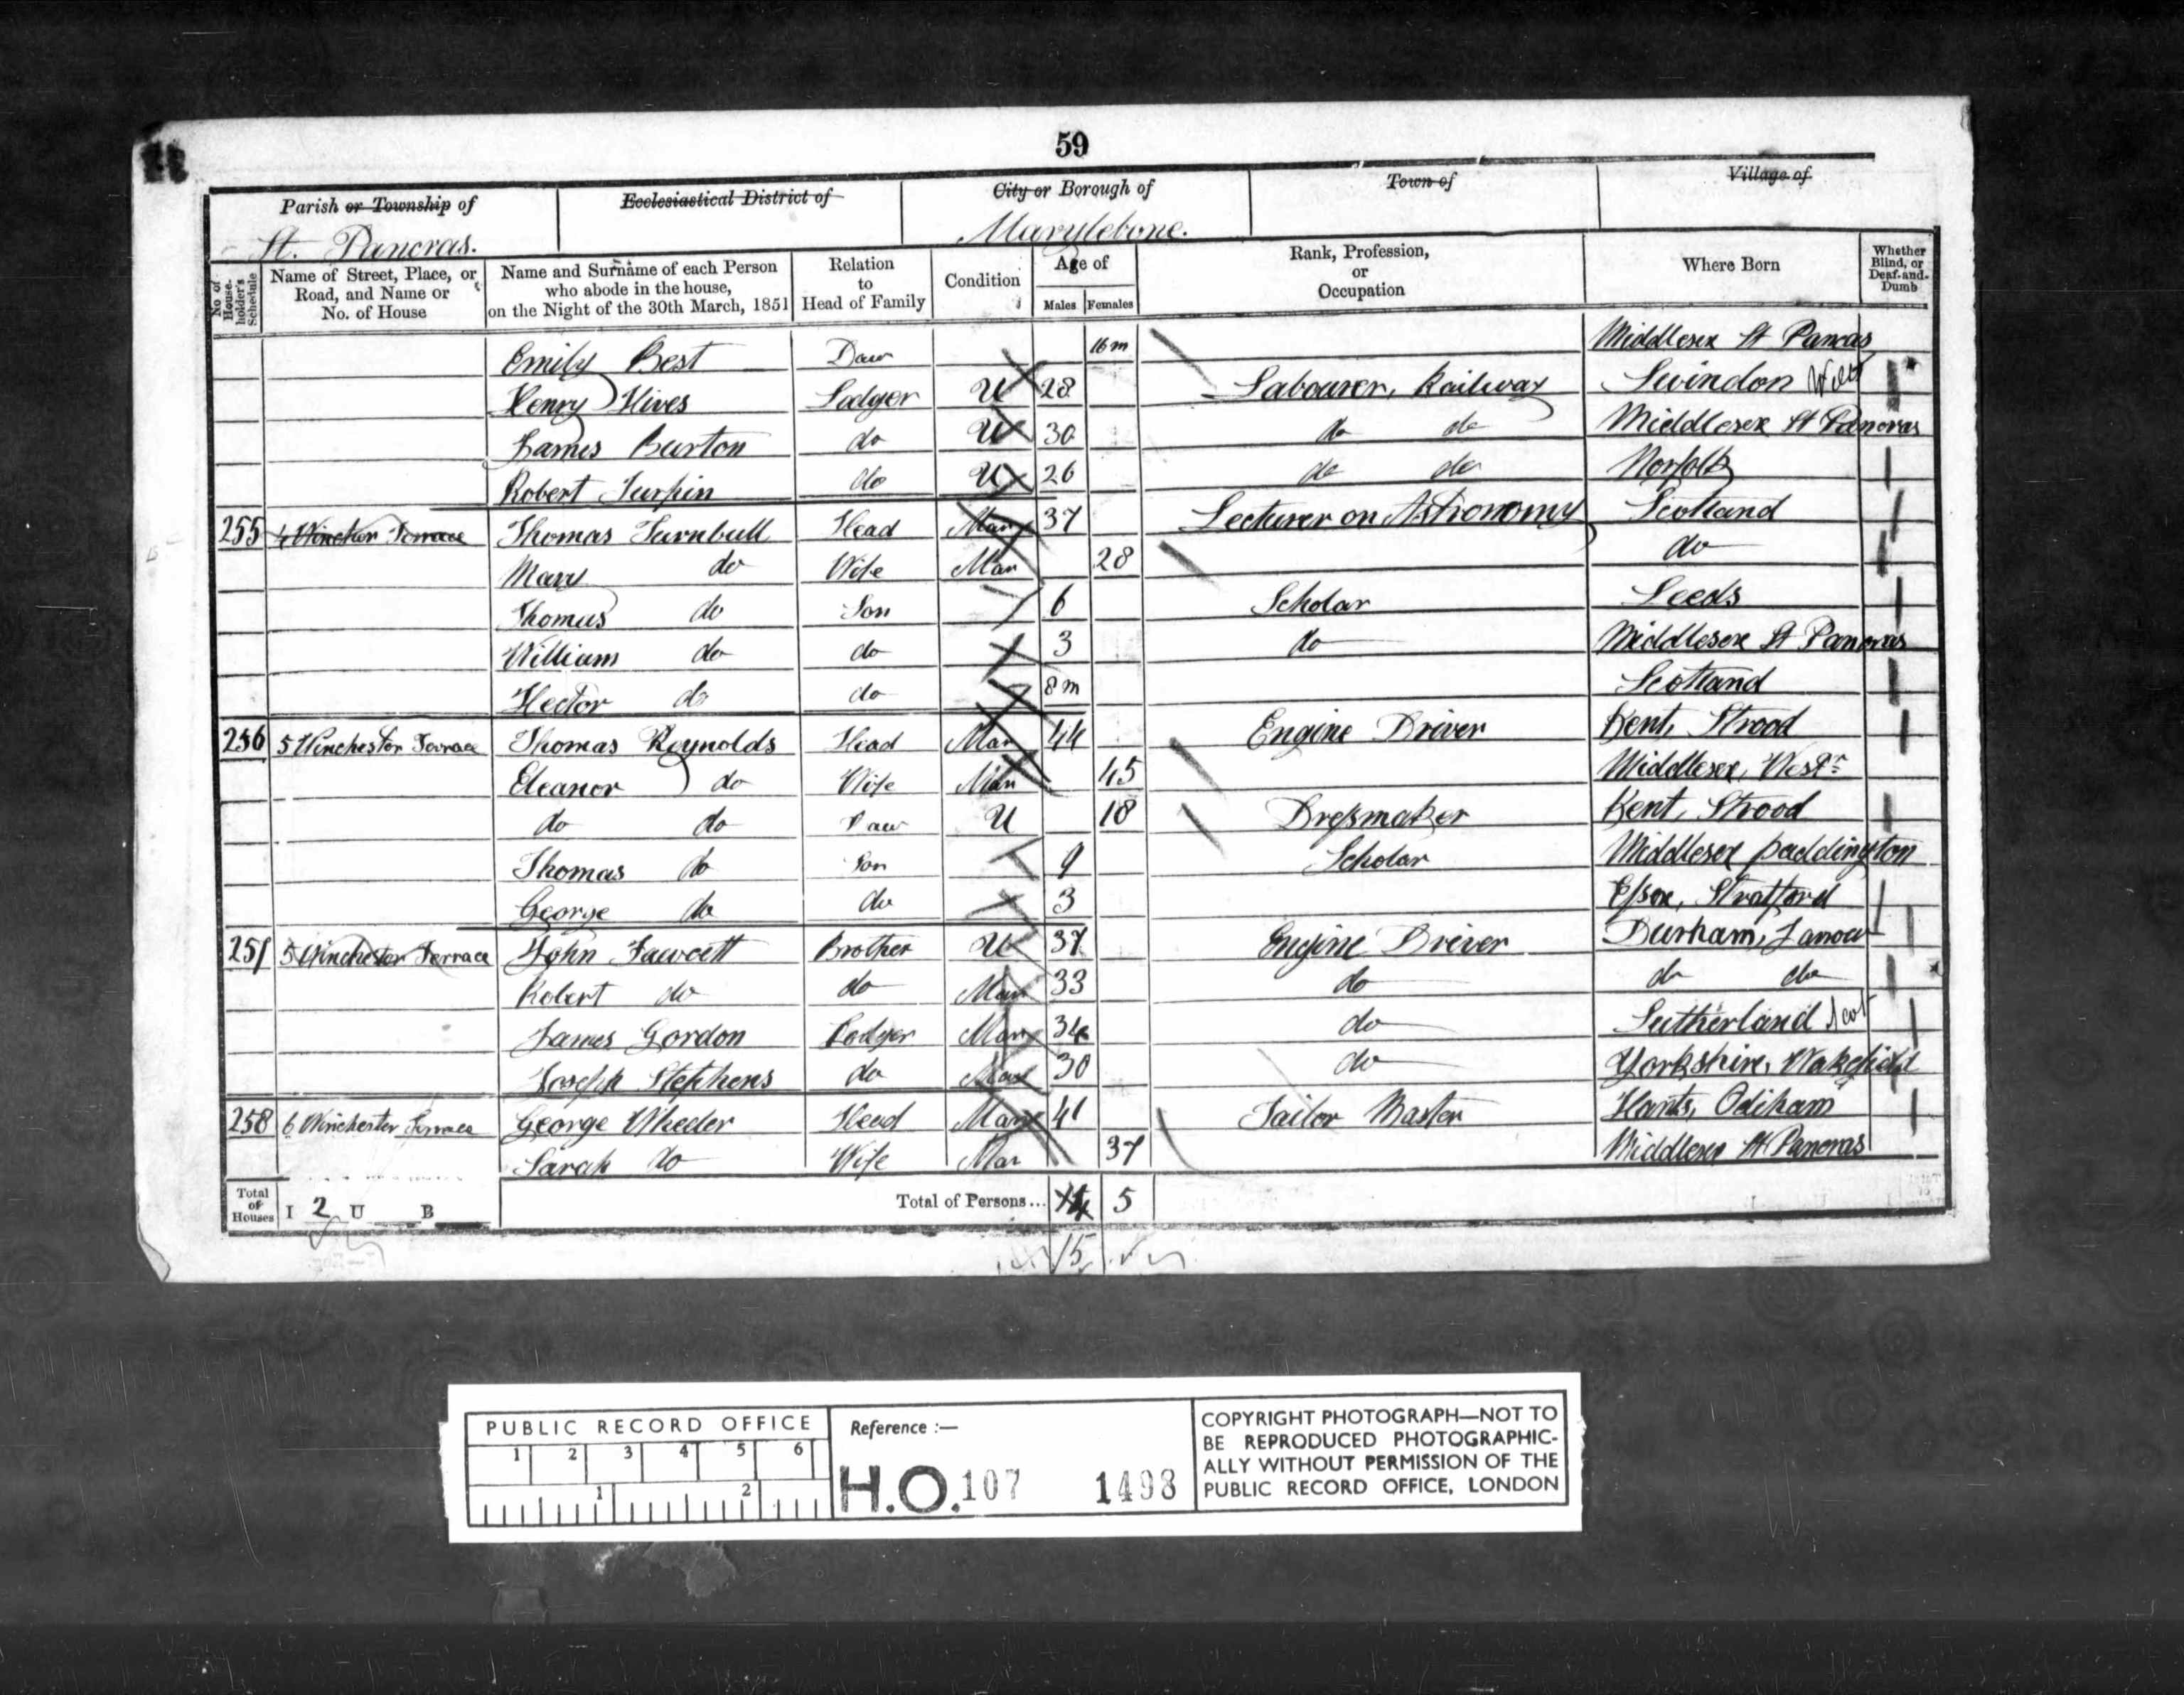 59
Parish or Township of
Ecclesiastical District of
City or Borough of
Town of
Village of
St. Pancras.
Marylebone.
No. of House-holder's Schedule
Name of Street, Place, or Road, and Name or No. of House
Name and Surname of each Person who abode in the house, on the Night of the 30th March, 1851
Relation to Head of Family
Condition
Age of
Males Females
Rank, Profession, or Occupation
Where Born
Whether Blind, or Deaf-and-Dumb
Emily Best Daur 16m Middlesex St Pancras
Henry Hives Lodger U 28 Labourer, Railway Swindon Wilts
James Burton do U 30 do do Middlesex St Pancras
Robert Turpin do U 26 do do Norfolk
255 4 Winchester Terrace Thomas Turnbull Head Mar 37 Lecturer on Astronomy Scotland
Mary do Wife Mar 28 do
Thomas do Son 6 Scholar Leeds
William do do 3 do Middlesex St Pancras
Hector do do 8m Scotland
256 5 Winchester Terrace Thomas Reynolds Head Mar 44 Engine Driver Kent, Strood
Eleanor do Wife Mar 45 Middlesex, Westr
do do Daur U 18 Dressmaker Kent, Strood
Thomas do Son 9 Scholar Middlesex paddington
George do do 3 Essex, Stratford
257 5 Winchester Terrace John Fawcett Brother U 37 Engine Driver Durham,
Robert do do Mar 33 do do do
James Gordon Lodger Mar 34 do Sutherland Scot
Joseph Stephens do Mar 30 do Yorkshire, Wakefield
258 6 Winchester Terrace George Wheeler Head Mar 41 Tailor Master Hants, Odiham
Sarah do Wife Mar 37 Middlesex St Pancras
Total of Houses I 2 U B Total of Persons... 14 5
15
PUBLIC RECORD OFFICE
1 2 3 4 5 6
1 2
Reference :—
H.O. 107 1498
COPYRIGHT PHOTOGRAPH—NOT TO
BE REPRODUCED PHOTOGRAPHIC-
ALLY WITHOUT PERMISSION OF THE
PUBLIC RECORD OFFICE, LONDON